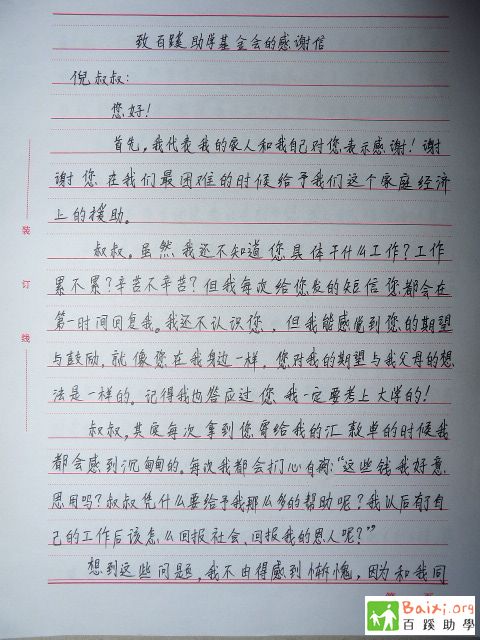 致百蹊助学基金会的感谢信
倪叔叔：
您好！
首先，我代表我的家人和我自己对您表示感谢！谢
谢您在我们最困难的时候给予我们这个家庭经济
上的援助。
叔叔。虽然我还不知道您具体干什么工作？工作
累不累？辛苦不辛苦？但我每次给您发的短信您都会在
第一时间回复我。我还不认识您，但我能感觉到您的期望
与鼓励，就像您在我身边一样，您对我的期望与我父母的想
法是一样的。记得我也答应过您我一定要考上大学的！
叔叔，其实每次拿到您寄给我的汇款单的时候我
都会感到沉甸甸的。每次我都会扪心自问：“这些钱我好意
思用吗？叔叔凭什么要给予我那么多的帮助呢？我以后有了自
己的工作后该怎么回报社会、回报我的恩人呢？”
想到这些问题，我不由得感到惭愧，因为和我同
装
订
线
Baixi.org
百蹊助學